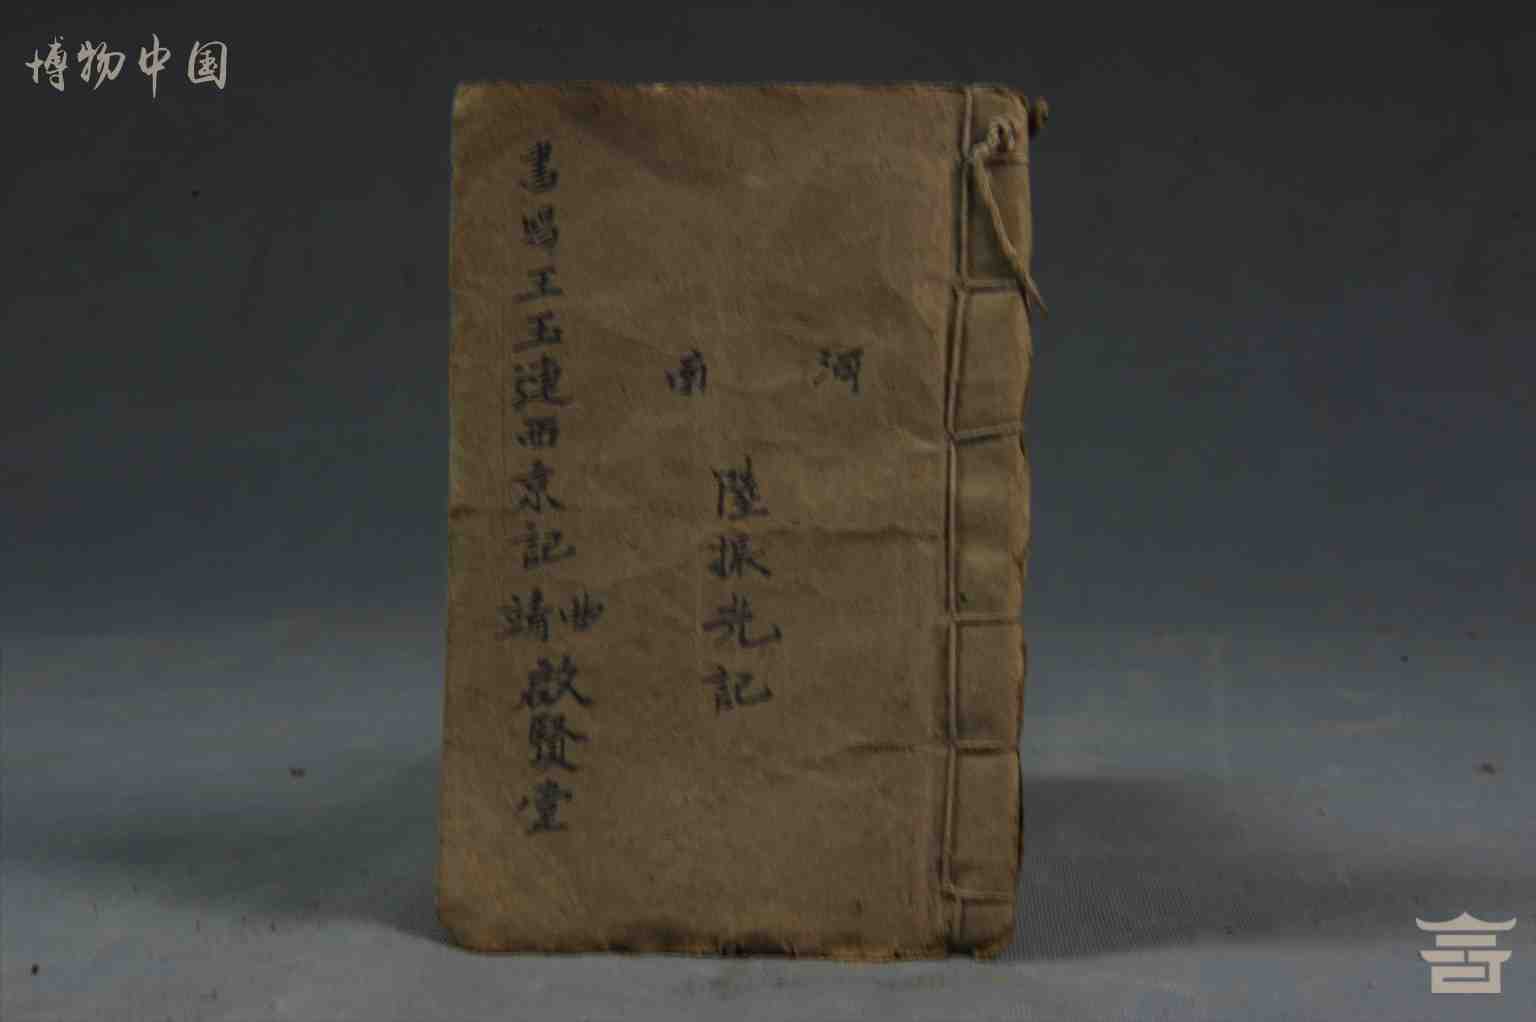 博物中国
河南
陸振光記
書唱王玉連西京記
曲靖
啟賢堂